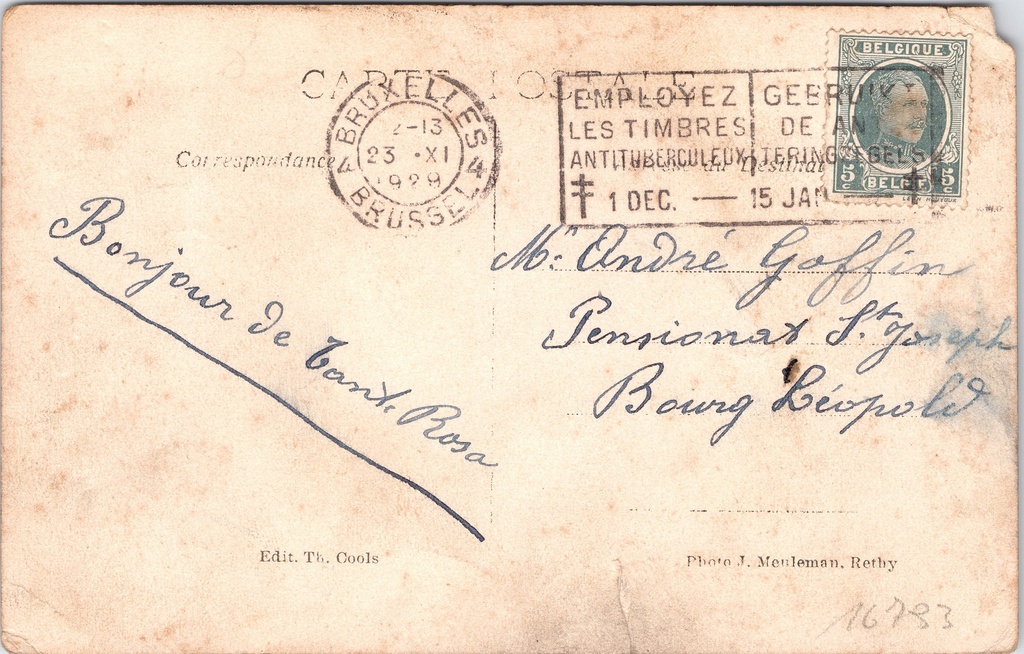 CARTE POSTALE
BRUXELLES 4
23 XI
1929
4 BRUSSEL 4
EMPLOYEZ
LES TIMBRES
ANTITUBERCULEUX
1 DEC. — 15 JAN
GEBRUIKT
DE AN
TERINGZEGELS
BELGIQUE
5c 5c
BELGIË
Correspondance
Bonjour de Tant. Rosa
Mr. André Goffin
Pensionat St. Joseph
Bourg Léopold
Edit. Th. Cools
Photo J. Meuleman, Rethy
16793